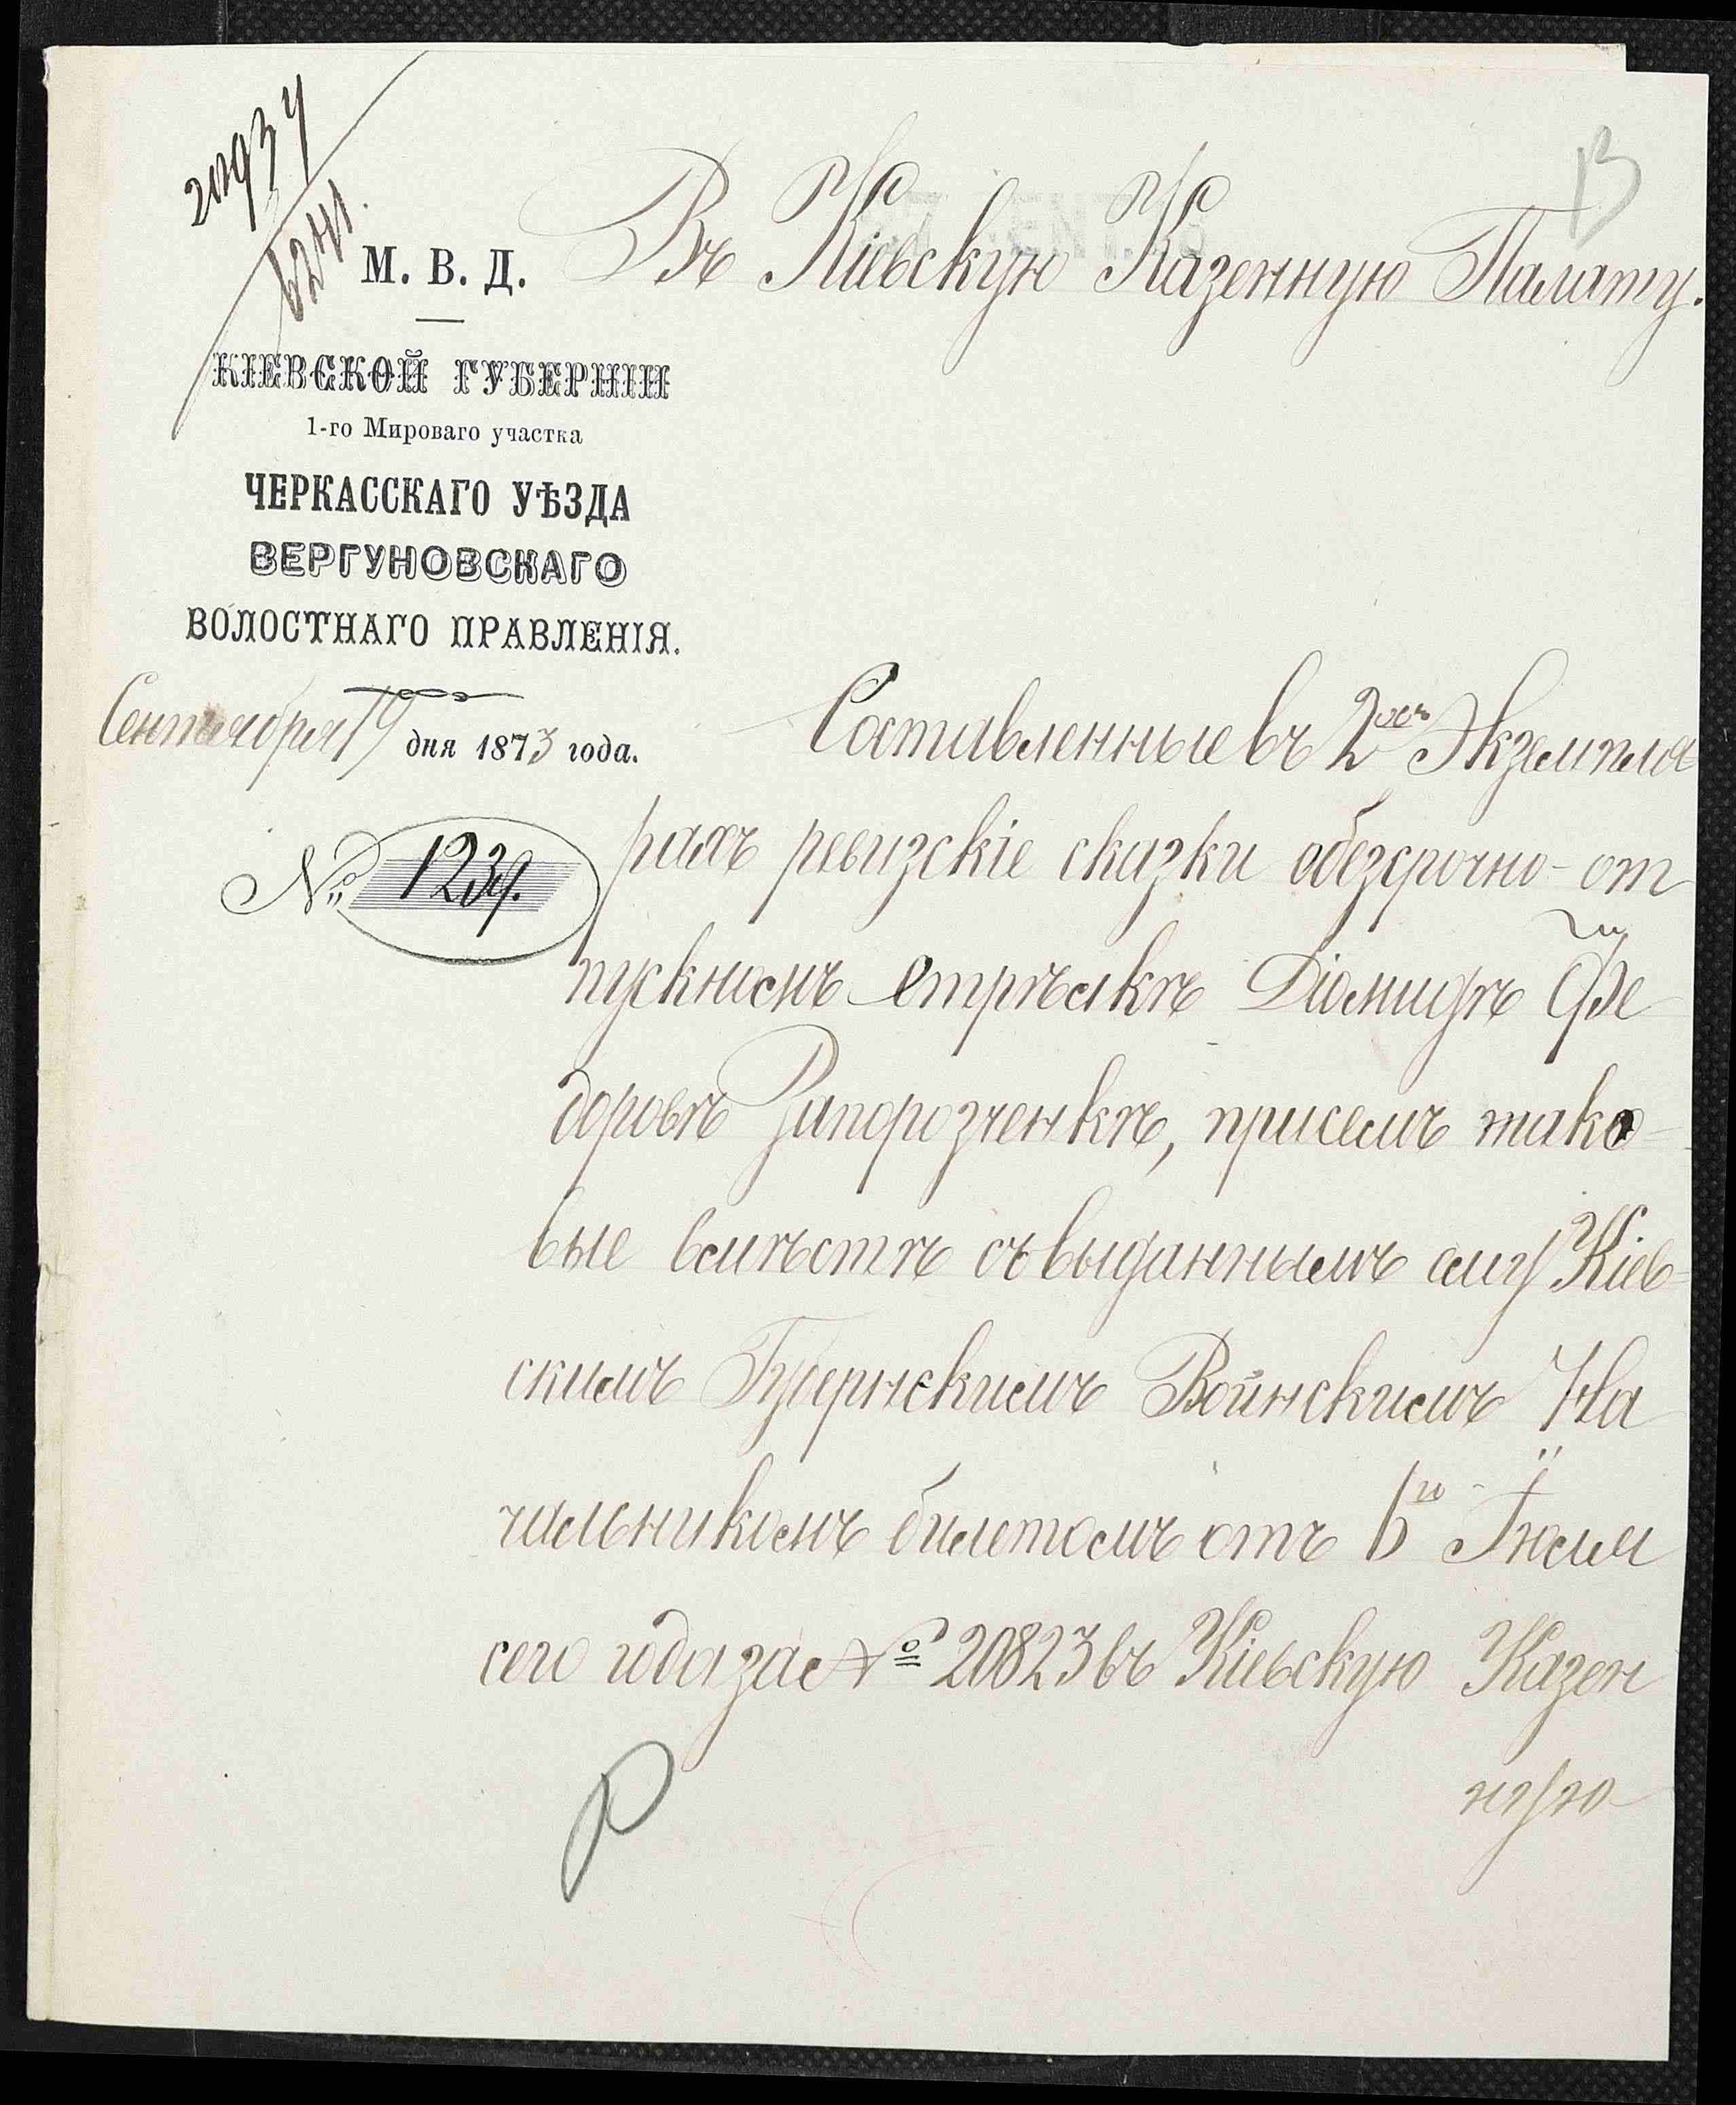 20934
6241.
М. В. Д.
Въ Кіевскую Казенную Палату.
КІЕВСКОЙ ГУБЕРНІИ
1-го Мироваго участка
ЧЕРКАССКАГО УѢЗДА
ВЕРГУНОВСКАГО
ВОЛОСТНАГО ПРАВЛЕНІЯ.
Сентября 19 дня 1873 года.
№ 1239.
Составленные въ 2хъ Экземпля
рахъ ревизскіе сказки обезсрочно-от
пускномъ стрѣлкѣ Діомидѣ Фе
доровѣ Запорозченкѣ, присемъ тако-
вые вмѣстѣ съ выданнымъ ему Кіев-
скимъ Губернскимъ Воинскимъ На
чальникомъ билетомъ отъ 6го Іюля
сего года за № 20823 въ Кіевскую Казен
ную